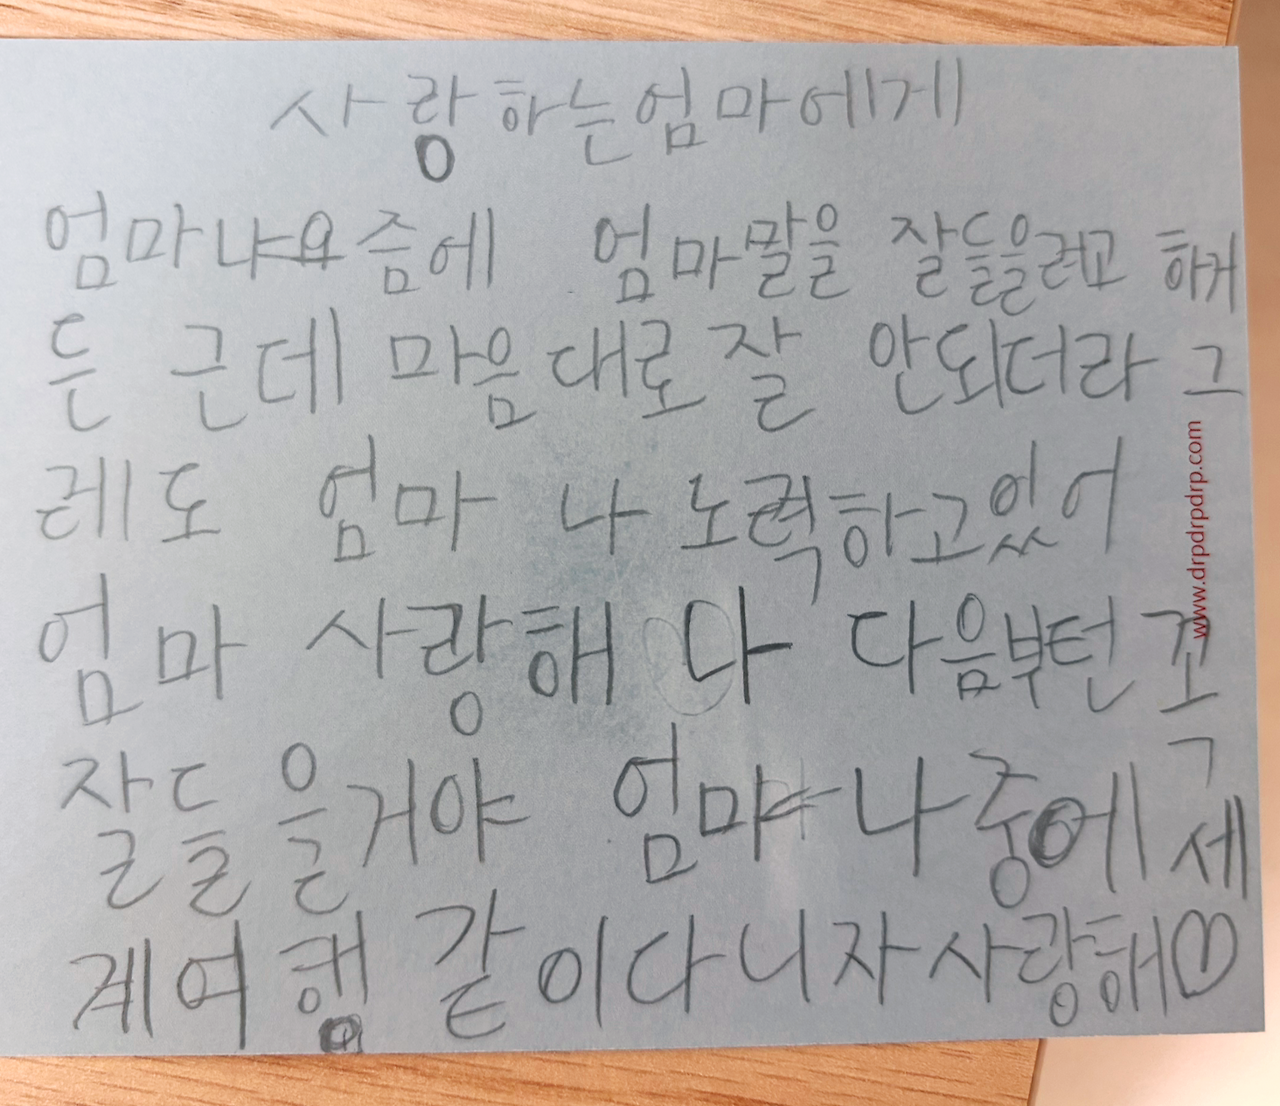 사랑하는엄마에게
엄마나요즘에 엄마말을 잘들을려고 하거
든 근데 마음대로잘 안되더라 그
레도 엄마 나 노력하고있어
엄마 사랑해 다 다음부턴 꼭
잘들을거야 엄마 나중에 세
계여행 같이다니자사랑해
www.drpdrpdrp.com